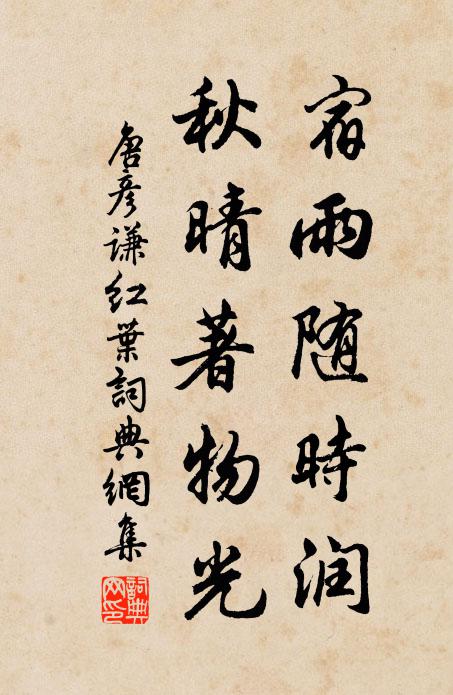 宿雨随時润
秋晴著物光
唐彦谦红葉詞典網集
詞典網印